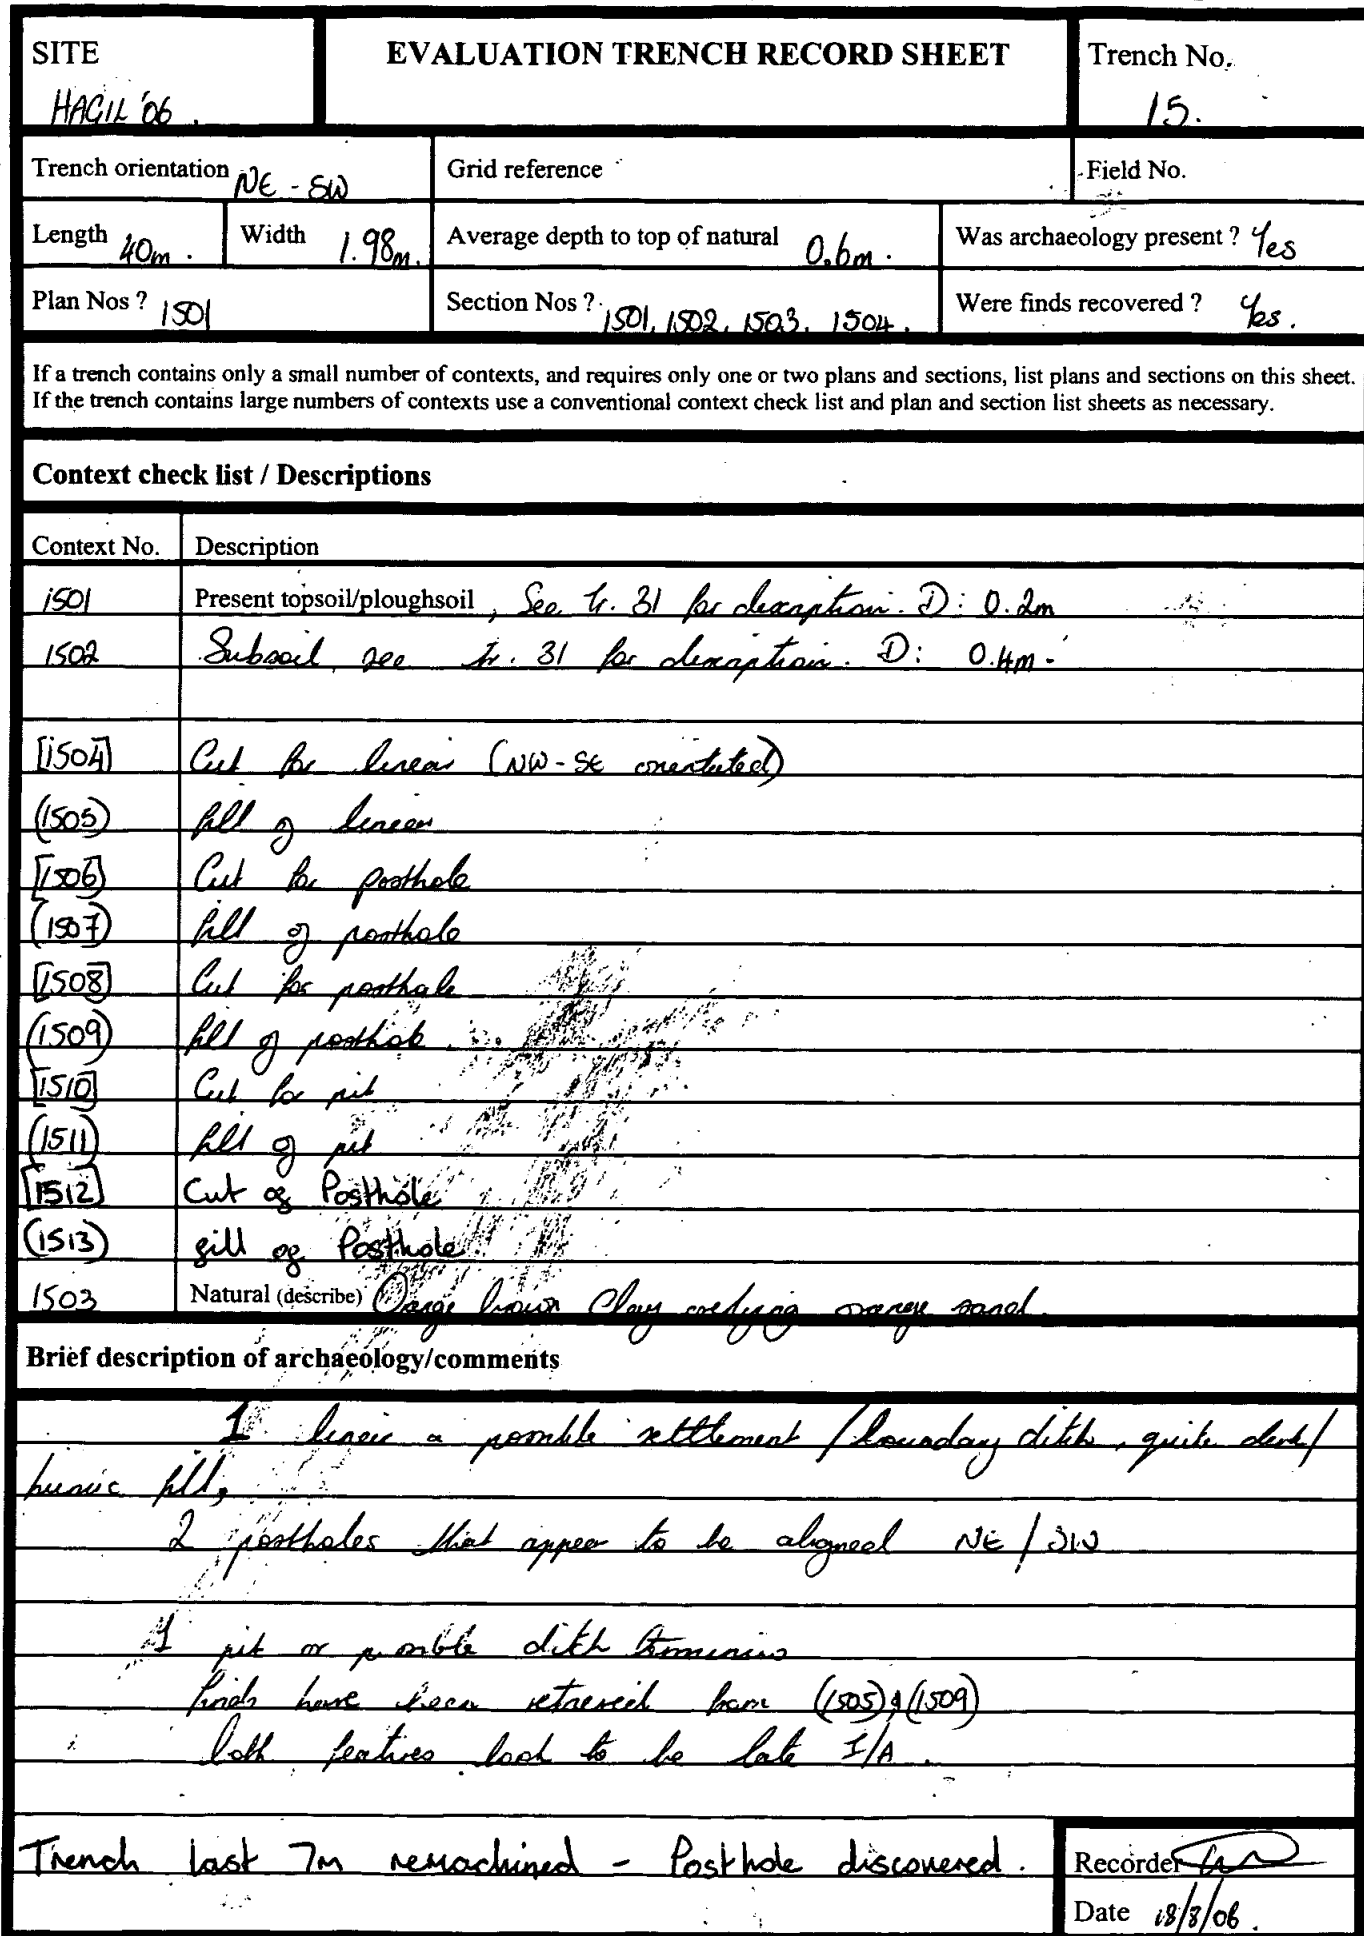 SITE
HAGIL '06.
EVALUATION TRENCH RECORD SHEET
Trench No.
15.
Trench orientation NE - SW
Grid reference
Field No.
Length 40m.
Width 1.98m.
Average depth to top of natural 0.6m.
Was archaeology present ? Yes
Plan Nos ? 1501
Section Nos ? 1501, 1502, 1503, 1504.
Were finds recovered ? Yes.
If a trench contains only a small number of contexts, and requires only one or two plans and sections, list plans and sections on this sheet.
If the trench contains large numbers of contexts use a conventional context check list and plan and section list sheets as necessary.
Context check list / Descriptions
Context No. Description
1501 Present topsoil/ploughsoil, See tr. 31 for description. D: 0.2m
1502 Subsoil, see tr. 31 for description. D: 0.4m.
[1504] Cut for linear (NW-SE orientated)
(1505) fill of linear
[1506] Cut for posthole
(1507) fill of posthole
[1508] Cut for posthole
(1509) fill of posthole.
[1510] Cut for pit
(1511) fill of pit
[1512] Cut of Posthole
(1513) fill of Posthole.
1503 Natural (describe) Orange brown Clay overlying orange sand.
Brief description of archaeology/comments
1 linear a possible settlement / boundary ditch, quite dark/
humic fill,
2 postholes that appear to be aligned NE / SW
1 pit or possible ditch terminus
finds have been retrieved from (1505) & (1509)
both features look to be late I/A.
Trench last 7m remachined - Posthole discovered.
Recorder
Date 18/8/06.